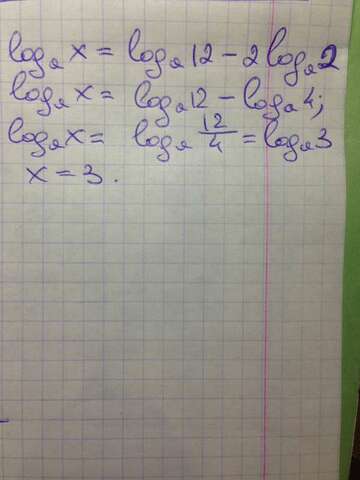 logₐ x = logₐ 12 - 2 logₐ 2
logₐ x = logₐ 12 - logₐ 4;
logₐ x = logₐ 12/4 = logₐ 3
x = 3.